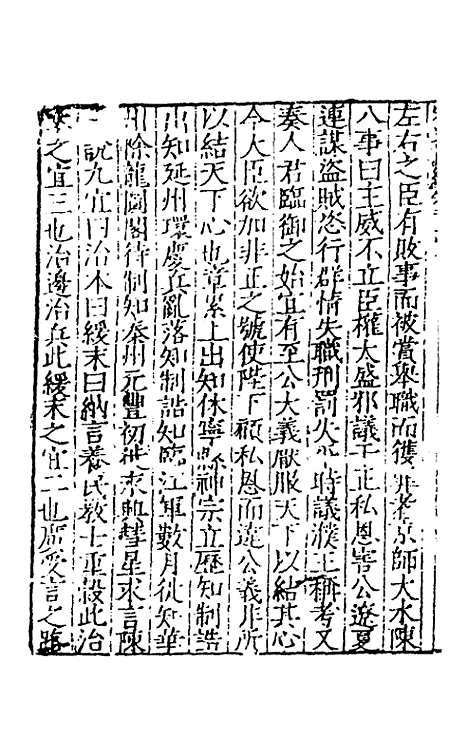 左右之臣有敗事而被賞舉職而獲罪者京師大水陳
八事曰主威不立臣權太盛邪議干正私恩害公遼夏
連謀盜賊恣行群情失職刑罰失平時議濮王稱考又
奏人君臨御之始宜有至公大義厭服天下以結其心
今大臣欲加非正之號使陛下顧私恩而違公義非所
以結天下心也章累上出知休寧縣神宗立歷知制誥
出知延州環慶兵亂落知制誥知臨江軍數月徙知華
州除龍圖閣待制知秦州元豐初徙永興彗星求言陳
說九宜曰治本曰緩末曰納言養民教士重穀此治
本之宜三也治邊治兵此緩末之宜二也廣受言之路